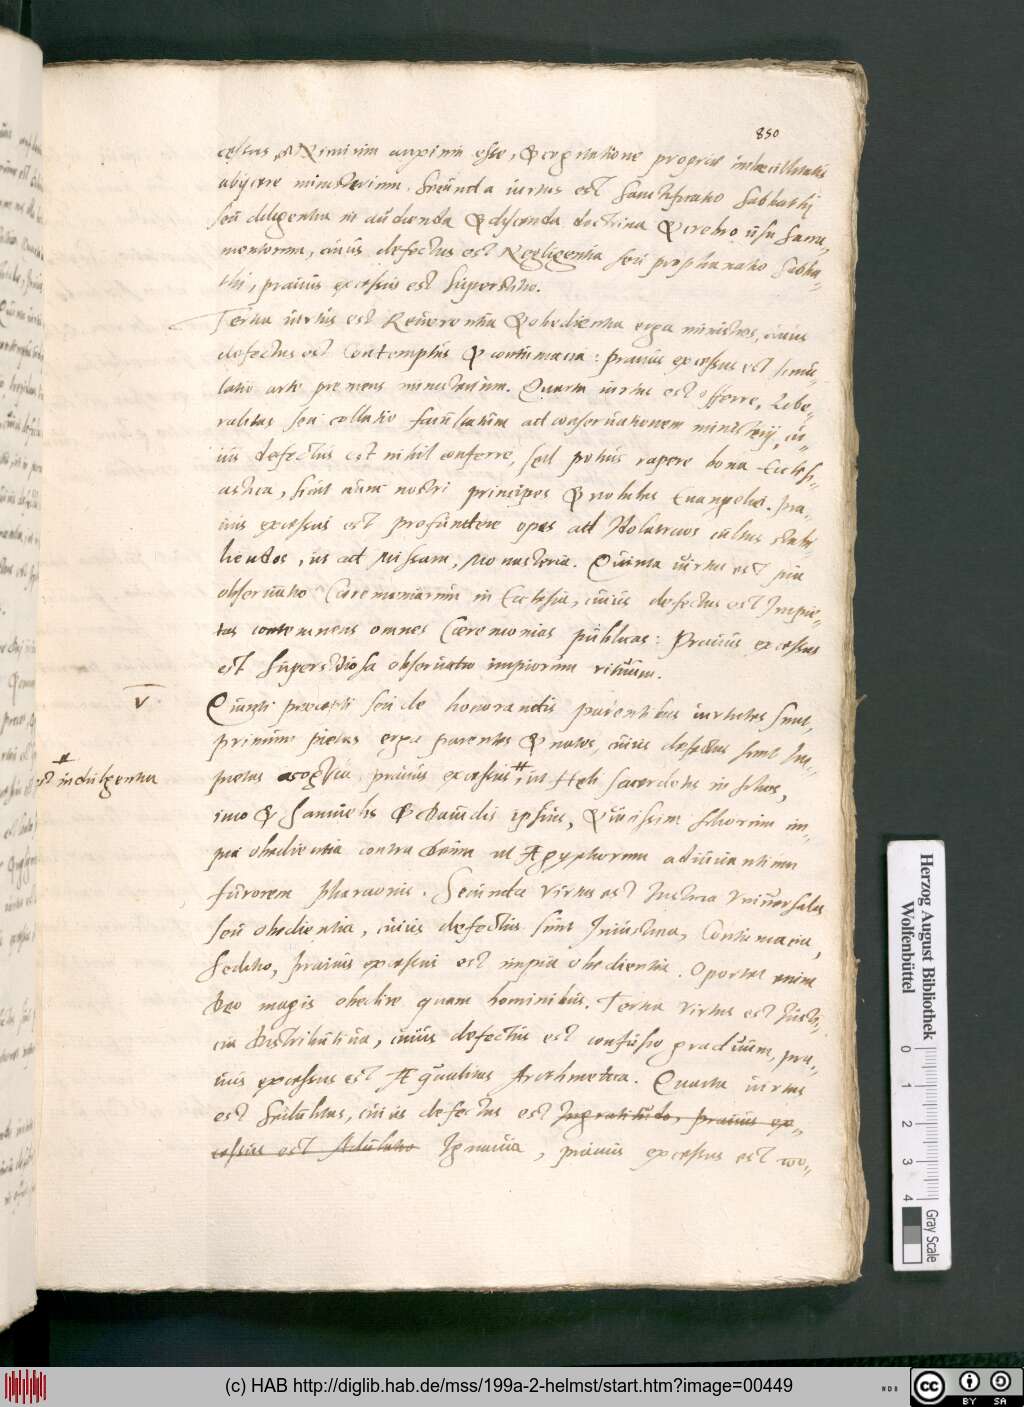 850
cessus, Nimium anxium esse, & cogitatione propriae imbecillitatis
abijcere ministerium. Secunda virtus est Sanctificatio Sabbathi
seu diligentia in audienda & discenda doctrina & crebro usu Sacra„
mentorum, cuius defectus est Negligentia seu prophanatio Sabba„
thi, pravus excessus est Superstitio.
Tertia virtus est Reverentia & obedientia erga ministros, cuius
defectus est Contemptus & contumacia: pravus excessus est simu„
latio arte premens ministerium. Quarta virtus est offerre, Libe„
ralitas seu collatio facultatum ad conservationem ministerij, cu„
ius defectus est nihil conferre, sed potius rapere bona Ecclesi„
astica, sicut nunc nostri principes & nobiles Evangelici. Pra„
vus excessus est profundere opes ad Idolatricos cultus stabi„
liendos, ut ad Missam, Monasteria. Quinta virtus est pia
observatio Caeremoniarum in Ecclesia, cuius defectus est Impie„
tas contemnens omnes Caeremonias publicas: Pravus excessus
est Superstitiosa observatio impiorum rituum.
V
Quinti praecepti seu de honorandis parentibus virtutes sunt,
primum pietas erga parentes & natos, cuius defectus sunt Im„
pietas pravus excessus # ut Heli sacerdotis in filios,
# est indulgentia
imo & Samuelis & Davidis ipsius, & vicissim filiorum im„
pia obedientia contra Deum ut Aegyptiorum adiuvantium
furorem Pharaonis. Secunda Virtus est Justicia Universalis
seu obedientia, cuius defectus sunt Iniusticia, Contumacia,
Seditio, Pravus excessus est impia obedientia. Oportet enim
Deo magis obedire quam hominibus. Tertia Virtus est Justi„
cia Distributiva, cuius defectus est confusio graduum, pra„
vus excessus est Aequalitas Arithmetica. Quarta virtus
est Sedulitas, cuius defectus est Ingratitudo, Pravus ex„
cessus est Adulatio Ignavia, pravus excessus est πο„
Herzog August Bibliothek
Wolfenbüttel
0 1 2 3 4
Gray Scale
(c) HAB http://diglib.hab.de/mss/199a-2-helmst/start.htm?image=00449
cc BY SA